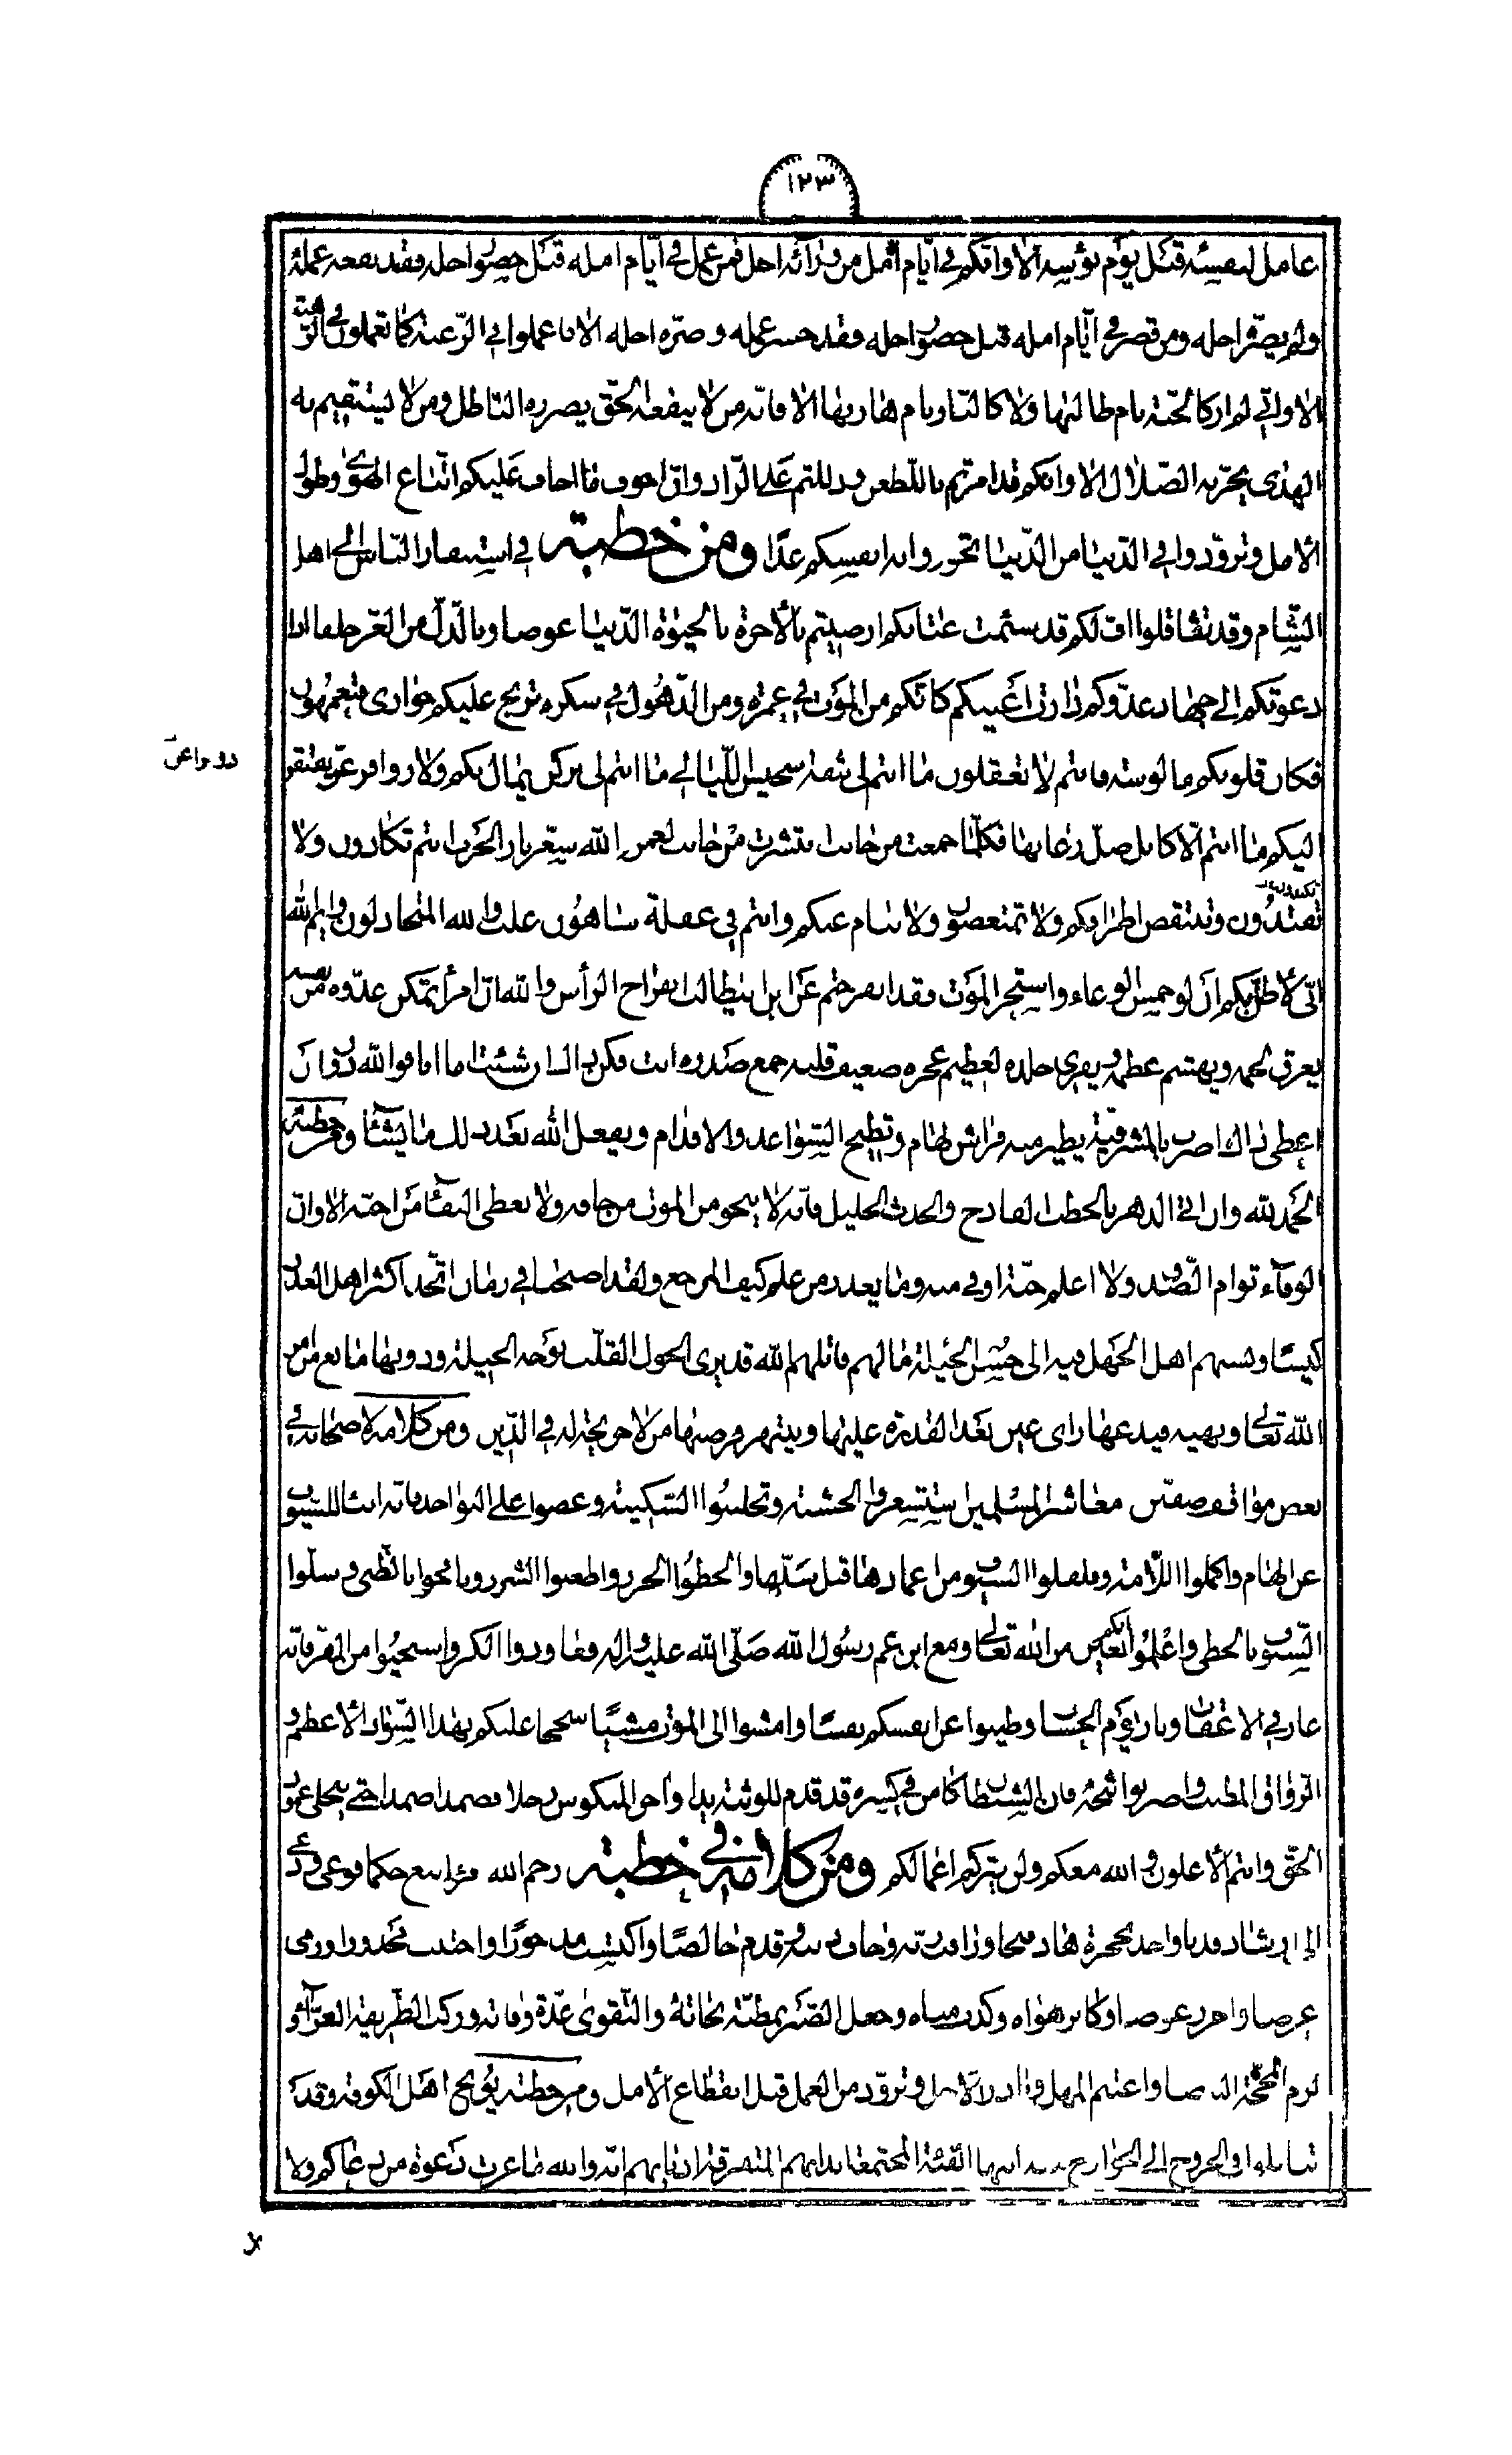 ١٢٣
عامل لنفسه قبل يوم بؤسه ألا وانكم في أيام أمل من ورائه اجل فمن عمل في أيام امله قبل حضور اجله فقد نفعه عمله
ولم يضره اجله ومن قصر في أيام امله قبل حضور اجله فقد خسر عمله وضره اجله ألا فاعملوا في الرغبة كما تعملون في الرهبة
ألا واني لم ار كالجنة نام طالبها ولا كالنار نام هاربها ألا فانه من لا ينفعه الحق يضرره الباطل ومن لا يستقيم به
الهدى يجر به الضلال ألا وانكم قد امرتم بالظعن ودللتم على الزاد وان اخوف ما اخاف عليكم اتباع الهوى وطول
الأمل وتزودوا في الدنيا من الدنيا ما تحرزون به انفسكم غدا ومن خطبته في استنفار الناس الى اهل
الشام وقد تثاقلوا اف لكم قد سئمت عتابكم ارضيتم بالآخرة بالحيوة الدنيا عوضا وبالذل من العز خلفا اذا
دعوتكم الى جهاد عدوكم دارت أعينكم كانكم من الموت في غمرة ومن الذهول في سكرة يرتج عليكم حوارى فتعمهون
فكان قلوبكم مالوسة فانتم لا تعقلون ما انتم لى بثقة سجيس الليالي ما انتم لى بركن يمال بكم ولا زوافر عز يفتقر
اليكم ما انتم الا كابل ضل رعاتها فكلما جمعت من جانب انتشرت من جانب لعمر الله سعر نار الحرب انتم تكادون ولا
تكيدون
وتنتقص اطرافكم ولا تمتعضون ولا ينام عنكم وانتم في غفلة ساهون غلب والله المتخاذلون وايم الله
اني لأظن بكم ان لو حمس الوغاء واستحر الموت قد انفرجتم عن ابن ابيطالب انفراج الرأس والله ان امرأ يمكن عدوه من نفسه
يعرق لحمه ويهشم عظمه ويفرى جلده لعظيم عجزه ضعيف قلبه جمع صدره انت فكن ذاك ان شئت اما انا فوالله دون ان
اعطى ذلك ضرب بالمشرفية يطير منه فراش الهام وتطيح السواعد والاقدام ويفعل الله بعد ذلك ما يشاء ومن خطبته
الحمد لله وان اتى الدهر بالخطب الفادح والحدث الجليل فانه لا ينجو من الموت من خافه ولا يعطى البقاء من احبه ألا وان
الوفاء توام الصدق ولا اعلم جنة اوفى منه وما يغدر من علم كيف المرجع ولقد اصبحنا في زمان اتخذ اكثر اهل الغدر
كيسا ونسبهم اهل الجهل فيه الى حسن الحيلة ما لهم قاتلهم الله قد يرى الحول القلب وجه الحيلة ودونها مانع من امر
الله تعالى ونهيه فيدعها رأى عين بعد القدرة عليها وينتهز فرصتها من لا حريجة له في الدين ومن كلامه لاصحابه في
بعض مواقف صفين معاشر المسلمين استشعروا الخشية وتجلببوا السكينة وعضوا على النواجذ فانه انبا للسيوف
عن الهام واكملوا اللامة وقلقلوا السيوف من اغمادها قبل سلها والحظوا الخزر واطعنوا الشزر ونافحوا بالظبى وصلوا
السيوف بالخطى واعلموا انكم بعين من الله تعالى ومع ابن عم رسول الله صلى الله عليه واله فعاودوا الكر واستحيوا من الفر فانه
عار في الاعقاب ونار يوم الحساب وطيبوا عن انفسكم نفسا وامشوا الى الموت مشيا سجحا عليكم بهذا السواد الأعظم و
الرواق المطنب واضربوا ثبجه فان الشيطان كامن في كسره قد قدم للوثبة يدا واخر للنكوص رجلا فصمدا صمدا حتى ينجلى عمود
الحق وانتم الأعلون والله معكم ولن يتركم اعمالكم ومن كلامه في خطبته رحم الله امرا سمع حكما فوعى ودعى
الى رشاد فدنا واخذ بحجزة هاد فنجا وراقب ربه وخاف ذنبه قدم خالصا واكتسب مذخورا واجتنب محذورا ورمى
غرضا واحرز عوضا وكابر هواه وكذب مناه وجعل الصبر مطية نجاته والتقوى عدة وفاته وركب الطريقة الغراء و
لزم المحجة البيضا واغتنم المهل وبادر الأجل وتزود من العمل قبل انقطاع الأمل ومن خطبته يوبخ اهل الكوفة وقد
تثاقلوا في الخروج الى الخوارج ايها الفئة المجتمعة ابدانهم المتفرقة اديانهم انه والله ما عزت دعوة من دعاكم ولا